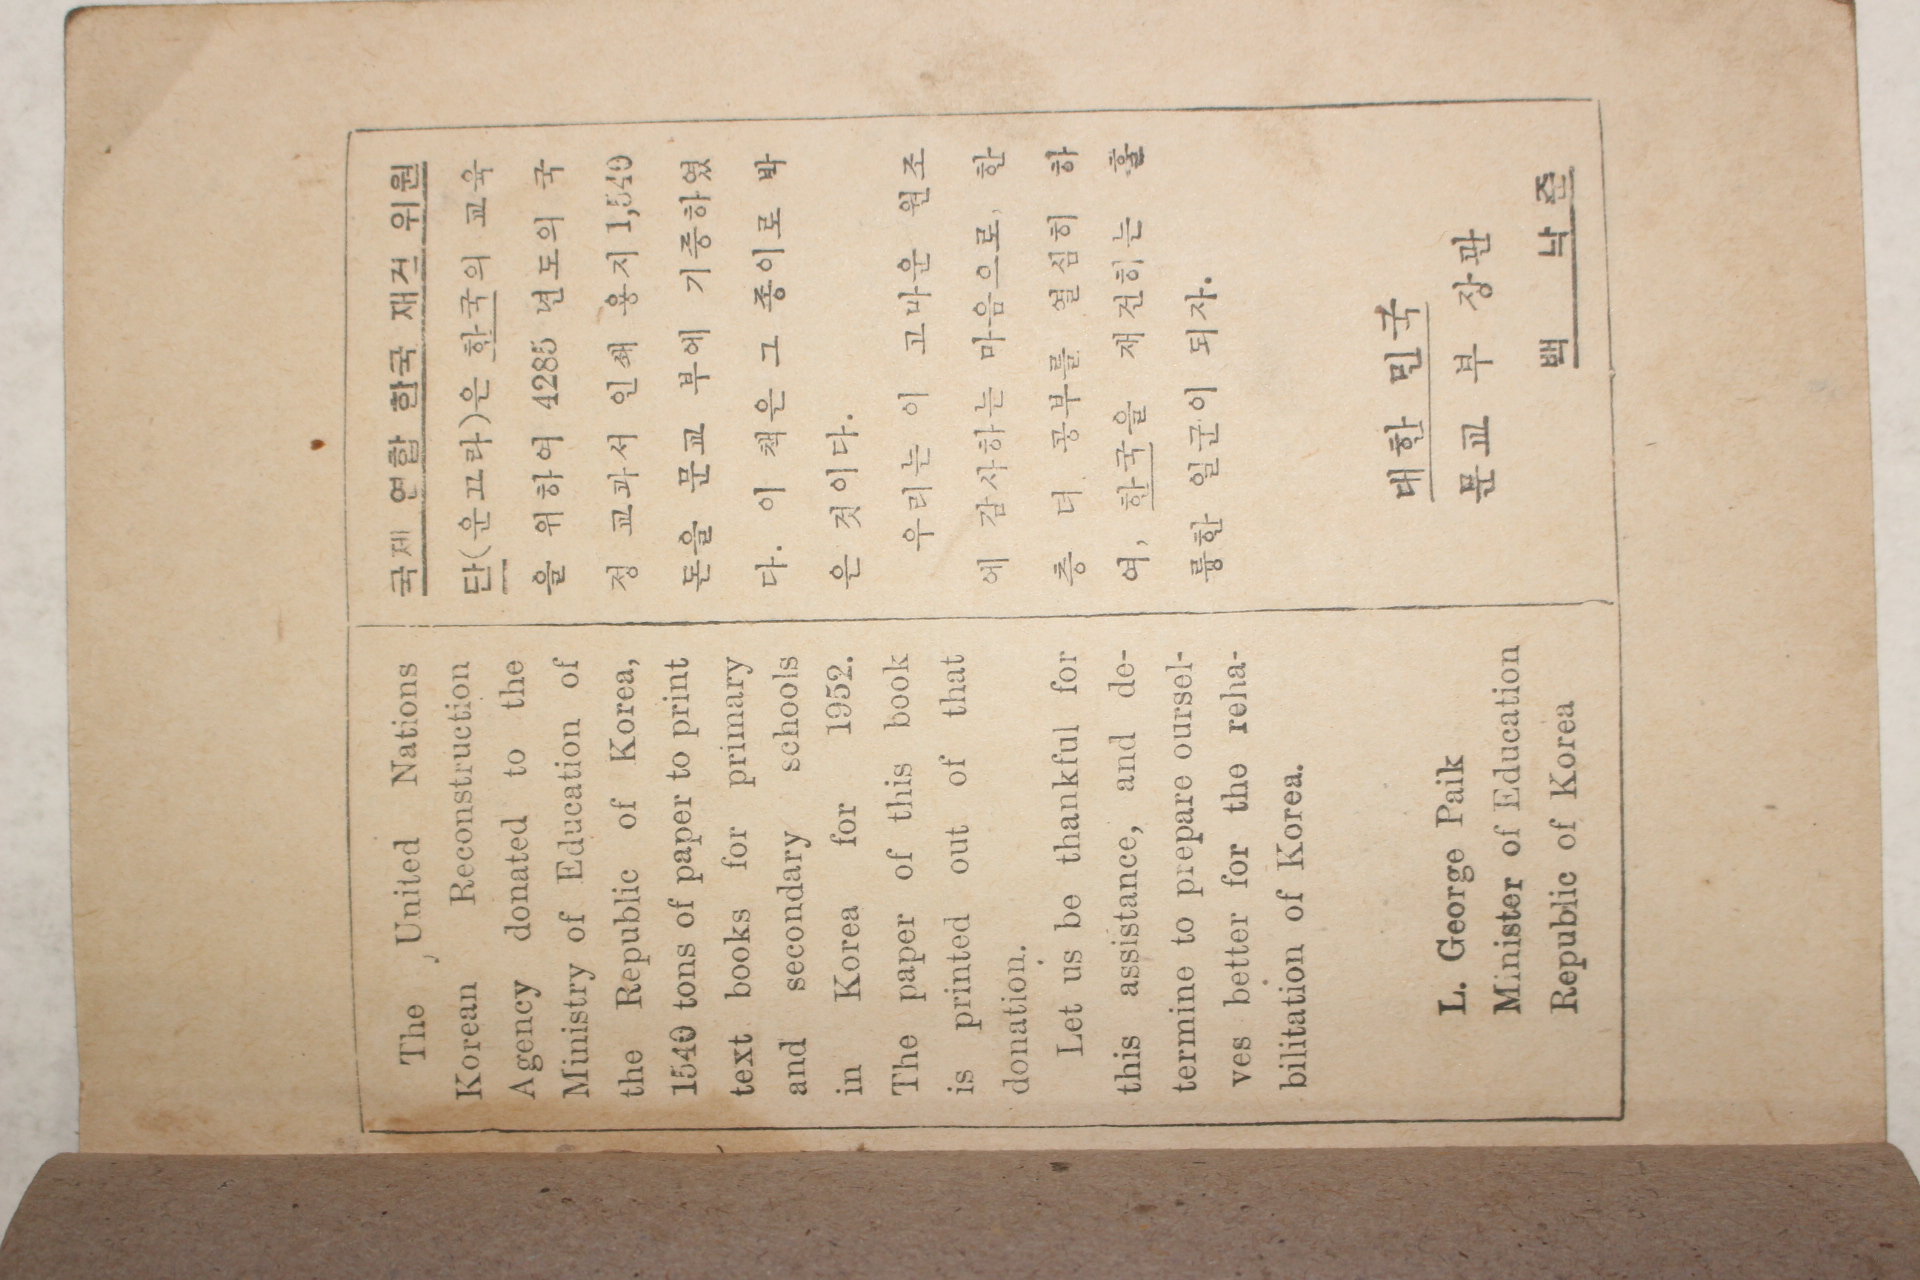 The United Nations
Korean Reconstruction
Agency donated to the
Ministry of Education of
the Republic of Korea,
1540 tons of paper to print
text books for primary
and secondary schools
in Korea for 1952.
The paper of this book
is printed out of that
donation.
Let us be thankful for
this assistance, and de-
termine to prepare oursel-
ves better for the reha-
bilitation of Korea.
L. George Paik
Minister of Education
Republic of Korea
국제 연합 한국 재건 위원
단(운끄라)은 한국의 교육
을 위하여 4285 년도의 국
정 교과서 인쇄 용지 1,540
돈을 문교 부에 기증하였
다. 이 책은 그 종이로 박
은 것이다.
우리는 이 고마운 원조
에 감사하는 마음으로, 한
층 더 공부를 열심히 하
여, 한국을 재건하는 훌
륭한 일군이 되자.
대한 민국
문교 부 장관
백 낙 준